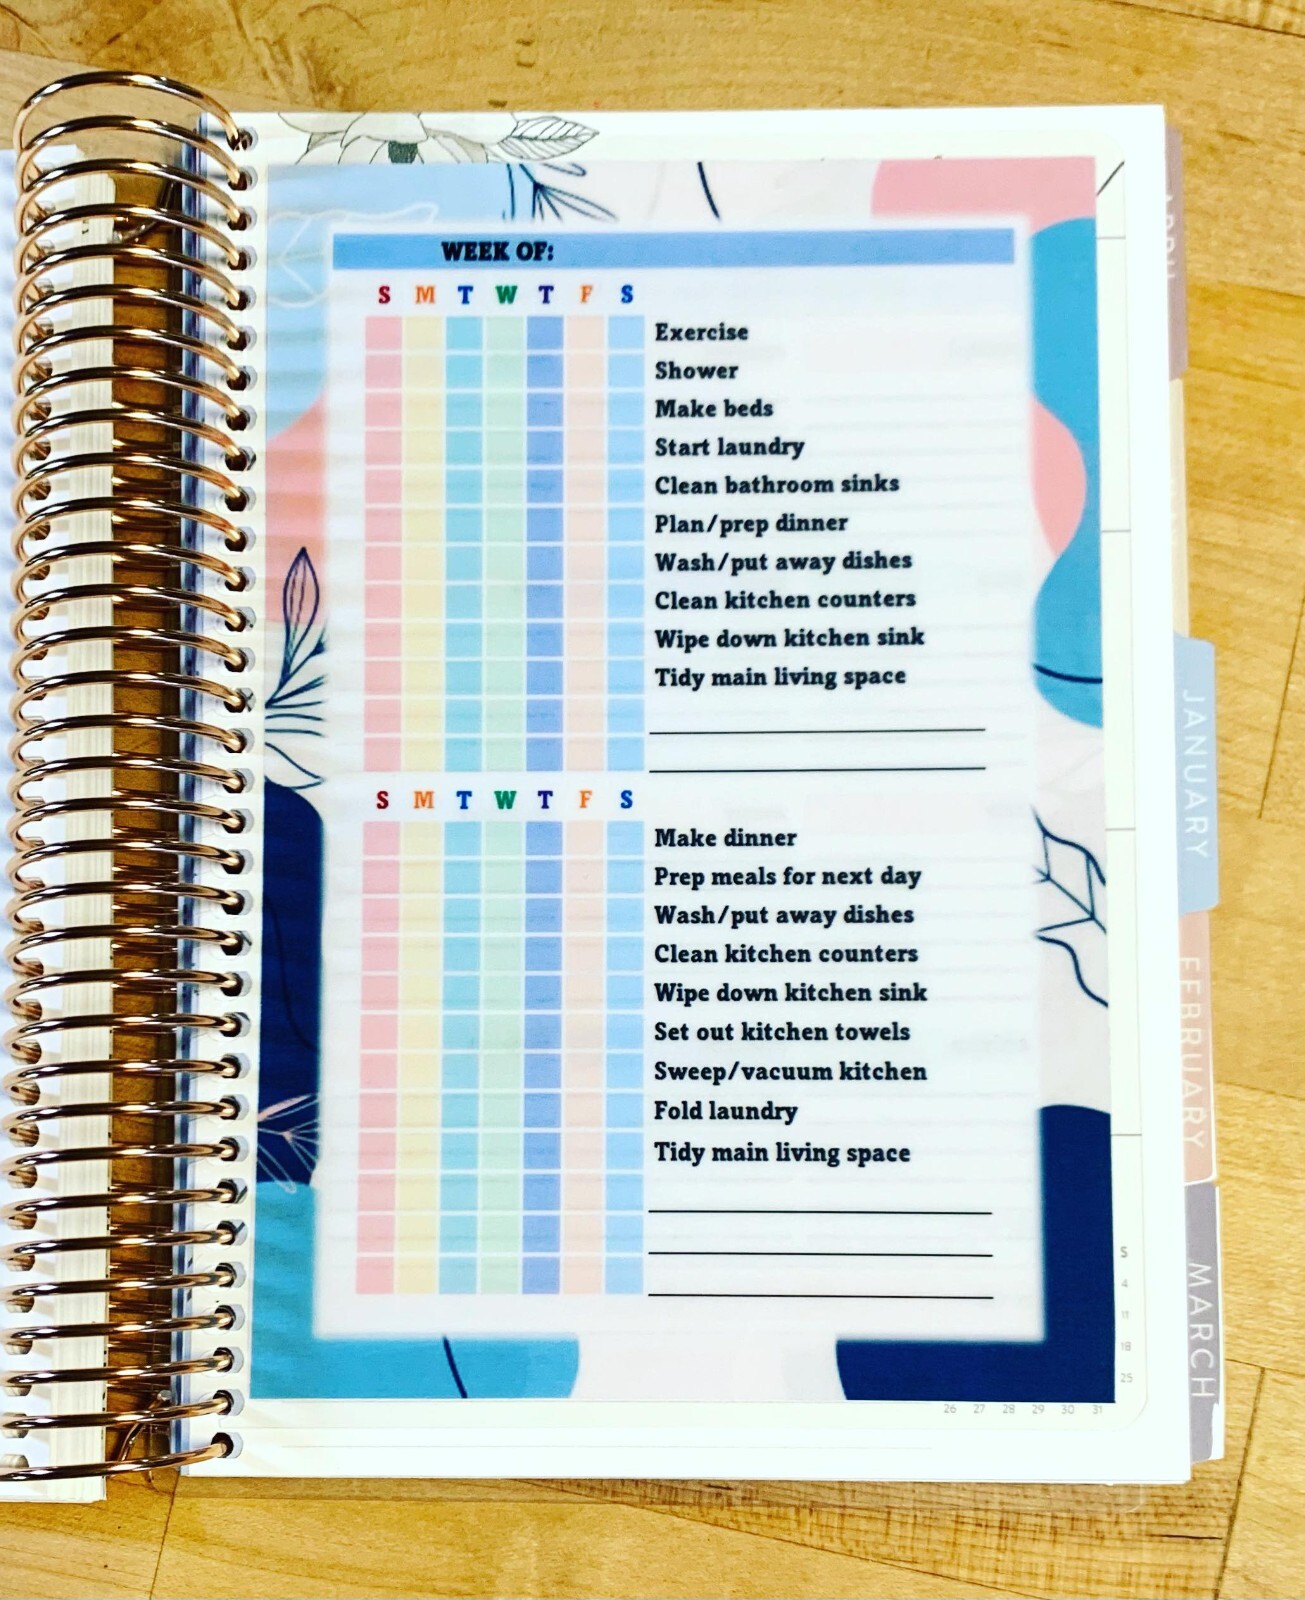 WEEK OF:
S M T W T F S
Exercise
Shower
Make beds
Start laundry
Clean bathroom sinks
Plan/prep dinner
Wash/put away dishes
Clean kitchen counters
Wipe down kitchen sink
Tidy main living space
S M T W T F S
Make dinner
Prep meals for next day
Wash/put away dishes
Clean kitchen counters
Wipe down kitchen sink
Set out kitchen towels
Sweep/vacuum kitchen
Fold laundry
Tidy main living space
S
4
11
18
25
26 27 28 29 30 31
APRIL
JANUARY
FEBRUARY
MARCH